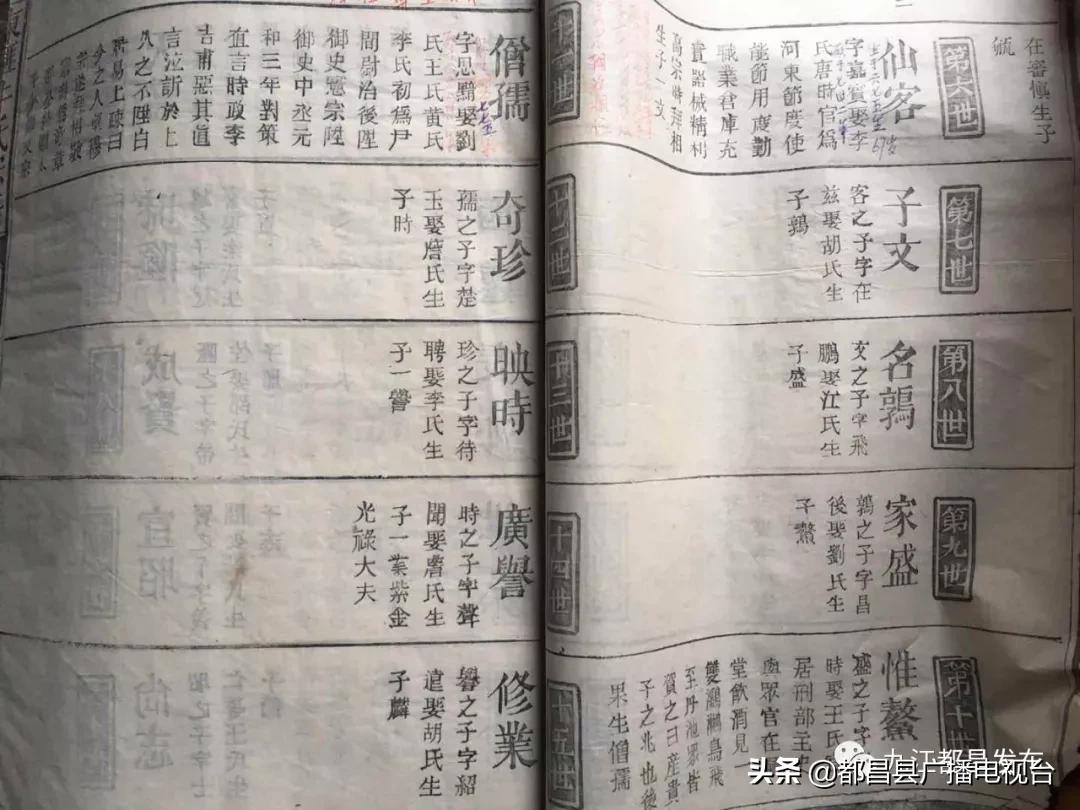 在審慎生子
毓
第六世
仙客
字嘉賓娶李
氏唐時官爲
河東節度使
能節用度勤
職業倉庫充
實器械精利
高宗時拜相
生子一文
第七世
子文
客之子字在
兹娶胡氏生
子鶉
第八世
名鶉
文之子字飛
鵬娶江氏生
子盛
第九世
家盛
鶉之子字昌
後娶劉氏生
子鰲
第十世
惟鰲
盛之子字
時娶王氏
居刑部主
與眾官在一
堂飲酒見一
雙鸂鶒鳥飛
至丹池眾皆
賀之曰産貴
子之兆也後
果生僧孺
十一世
僧孺
字思黯娶劉
氏王氏黄氏
李氏初爲尹
闕尉治後陞
御史憲宗陞
御史中丞元
和三年對策
直言時政李
吉甫惡其直
言泣訴於上
久之不陞白
居易上疏曰
十二世
奇珍
孺之子字楚
玉娶詹氏生
子時
十三世
映時
珍之子字待
聘娶李氏生
子一譽
十四世
廣譽
時之子字聲
聞娶詹氏生
子一業紫金
光祿大夫
十五世
修業
譽之子字紹
遠娶胡氏生
子麟
九江都昌发布
头条 @都昌县广播电视台